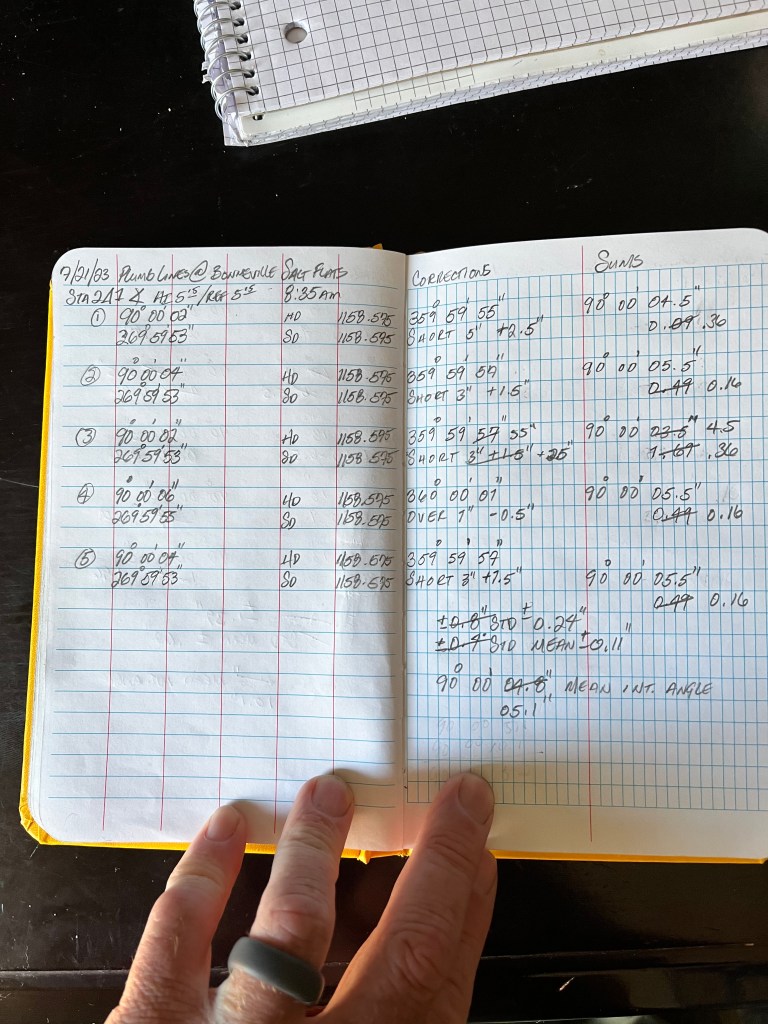 7/21/23 PLUMB LINES @ BONNEVILLE SALT FLATS
STA 2 AI 5.15 / REF 5.15 8:35 AM
① 90° 00' 03" HD 1158.595
269° 59' 53" SD 1158.595
② 90° 00' 04" HD 1158.595
269° 59' 53" SD 1158.595
③ 90° 00' 02" HD 1158.595
269° 59' 53" SD 1158.595
④ 90° 00' 06" HD 1158.595
269° 59' 55" SD 1158.595
⑤ 90° 00' 04" HD 1158.595
269° 59' 53" SD 1158.595
CORRECTIONS SUMS
359° 59' 55" 90° 00' 04.5"
SHORT 5" +2.5" 0.09 .36
359° 59' 57" 90° 00' 05.5"
SHORT 3" +1.5" 0.49 0.16
359° 59' 57" 55" 90° 00' 03.5" 4.5
SHORT 3" +1.5" +25" 1.69 .36
360° 00' 01" 90° 00' 05.5"
OVER 1" -0.5" 0.49 0.16
359° 59' 57" 90° 00' 05.5"
SHORT 3" +1.5" 0.49 0.16
±0.8" STD ±0.24"
±0.4" STD MEAN ±0.11"
90° 00' 04.8" MEAN INT. ANGLE
05.1"